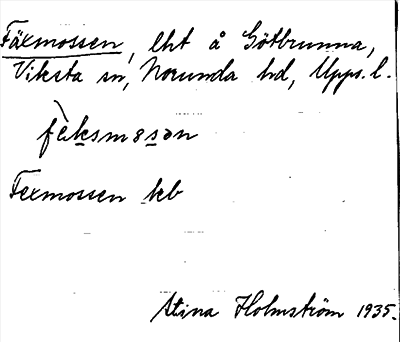 Fäxmossen, lht å Götbrunna,
Viksta sn, Norunda hd, Upps. l.
fèksmosən
Fexmossen kb
Stina Holmström 1935.